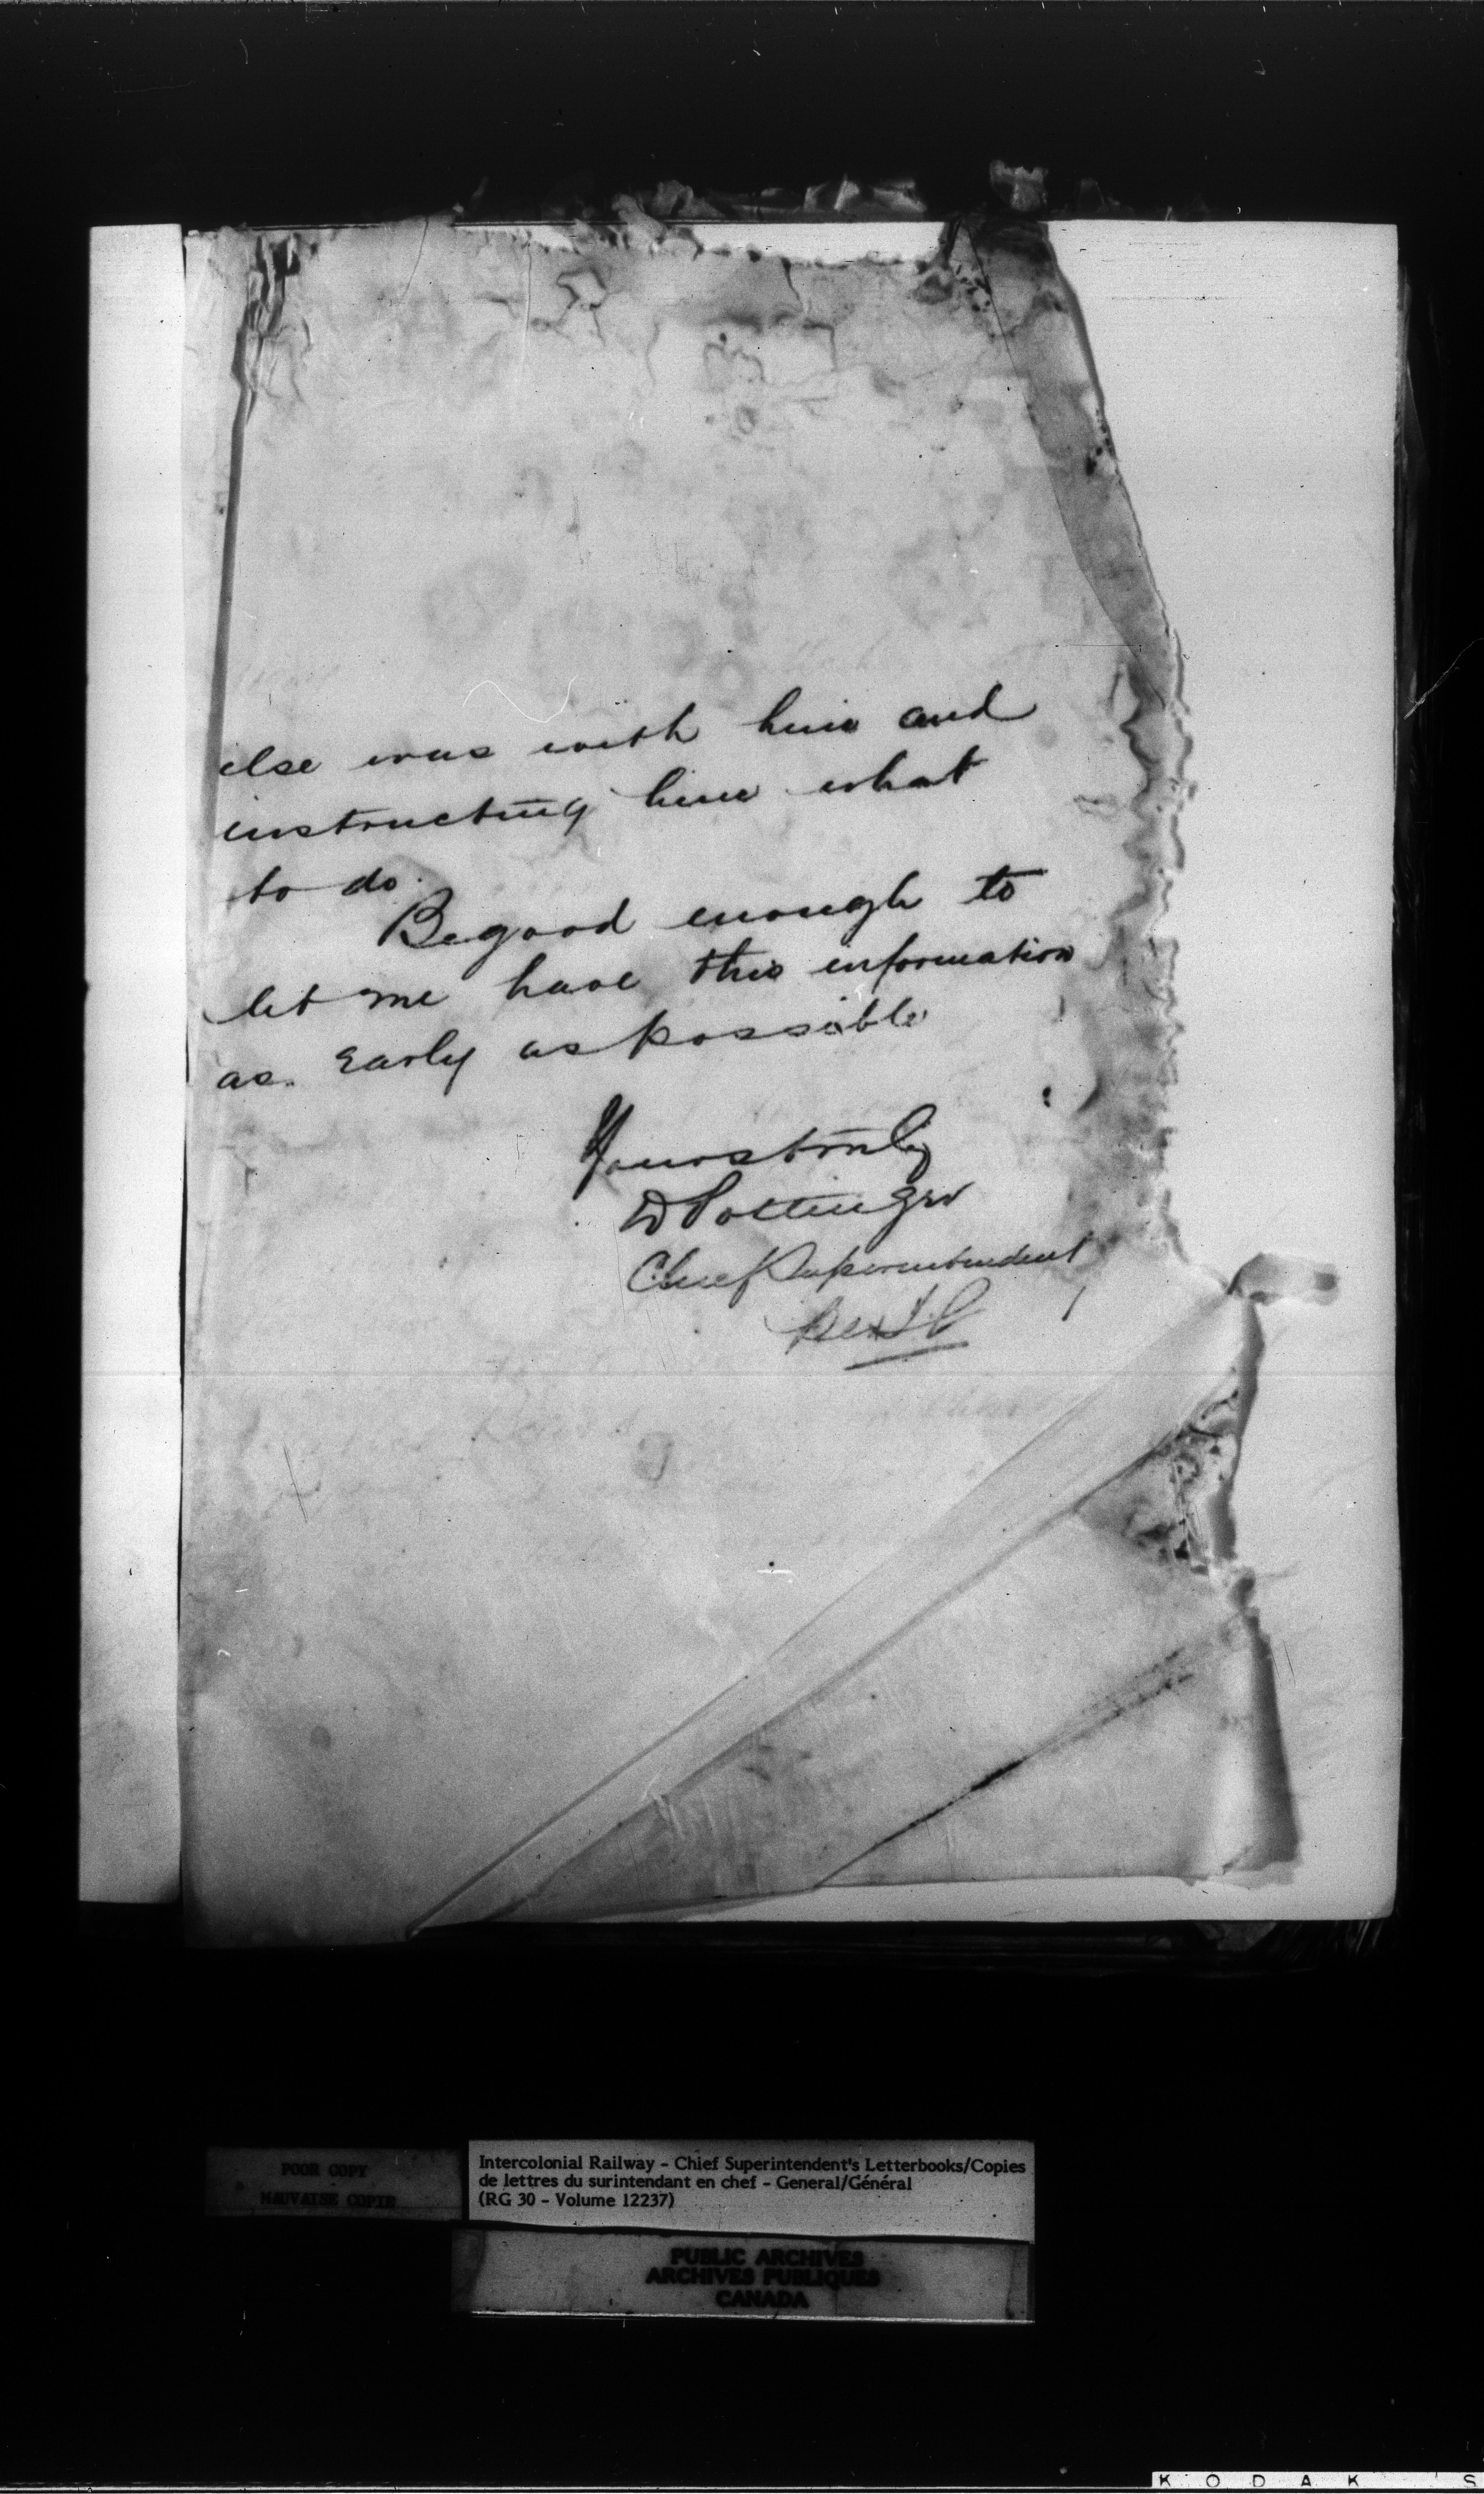 else was with him and
instructing him what
to do.
Be good enough to
let me have this information
as early as possible
Yours truly
D Pottinger
Chief Superintendent
POOR COPY
MAUVAISE COPIE
Intercolonial Railway - Chief Superintendent's Letterbooks/Copies
de lettres du surintendant en chef - General/Général
(RG 30 - Volume 12237)
PUBLIC ARCHIVES
ARCHIVES PUBLIQUES
CANADA
KODAK S